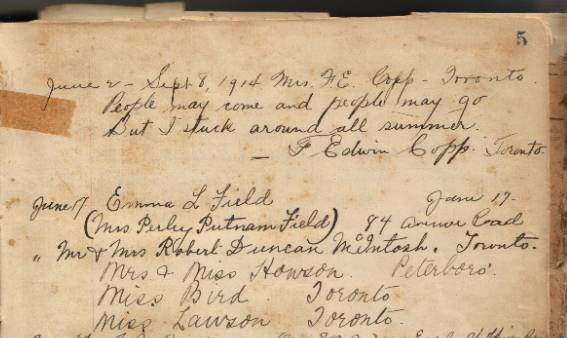 5
June 2 - Sept 8, 1914 Mrs. F. E. Copp - Toronto.
People may come and people may go
But I stuck around all summer.
- F Edwin Copp. Toronto.
June 17. Emma L Field June 17.
(Mrs Perley Putnam Field) 84 Avenue Road
" Mr & Mrs Robert Duncan McIntosh. Toronto.
Mrs. & Miss Howson. Peterboro.
Miss Bird. Toronto
Miss Lawson Toronto.